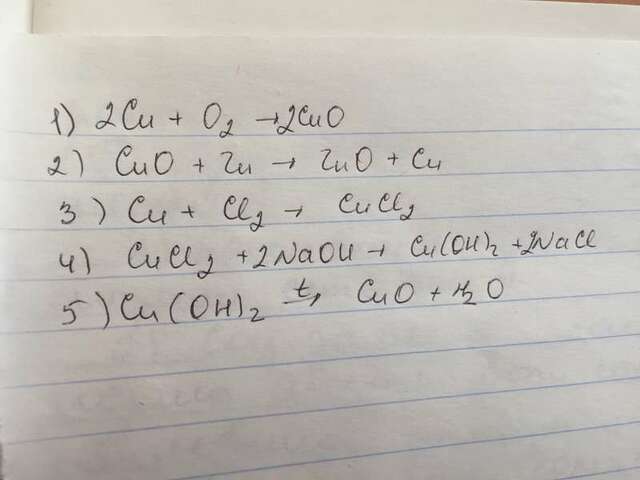 1) 2Cu + O₂ → 2CuO
2) CuO + Zn → ZnO + Cu
3) Cu + Cl₂ → CuCl₂
4) CuCl₂ + 2NaOH → Cu(OH)₂ + 2NaCl
5) Cu(OH)₂ t→ CuO + H₂O